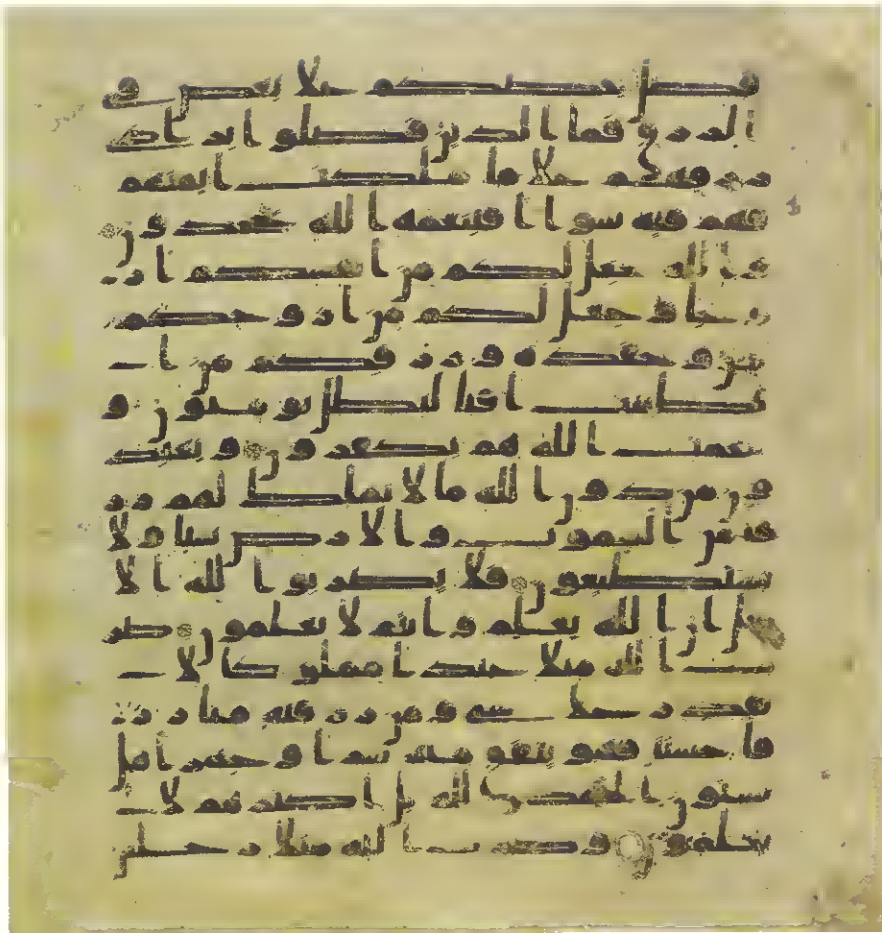 فضل بعضكم علا بعض في
الرزق فما الذين فضلوا برادي
رزقهم علا ما ملكت ايمنهم
فهم فيه سوا افبنعمه الله يجحدون
والله جعل لكم من انفسكم از
وجا وجعل لكم من ازوجكم
بنين وحفده ورزقكم من ا
لطيبت افبالبطل يومنون و
بنعمت الله هم يكفرون ويعبد
ون من دون الله ما لا يملك لهم رز
قا من السموت والارض شيا ولا
يستطيعون فلا تضربوا لله الا
مثل ان الله يعلم وانتم لا تعلمون ضر
ب الله مثلا عبدا مملوكا لا
يقدر علا شي ومن رزقنه منا رز
قا حسنا فهو ينفق منه سرا وجهرا هل
يستون الحمد لله بل اكثرهم لا
يعلمون وضرب الله مثلا رجلين